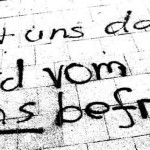 t uns da
d vom
befr